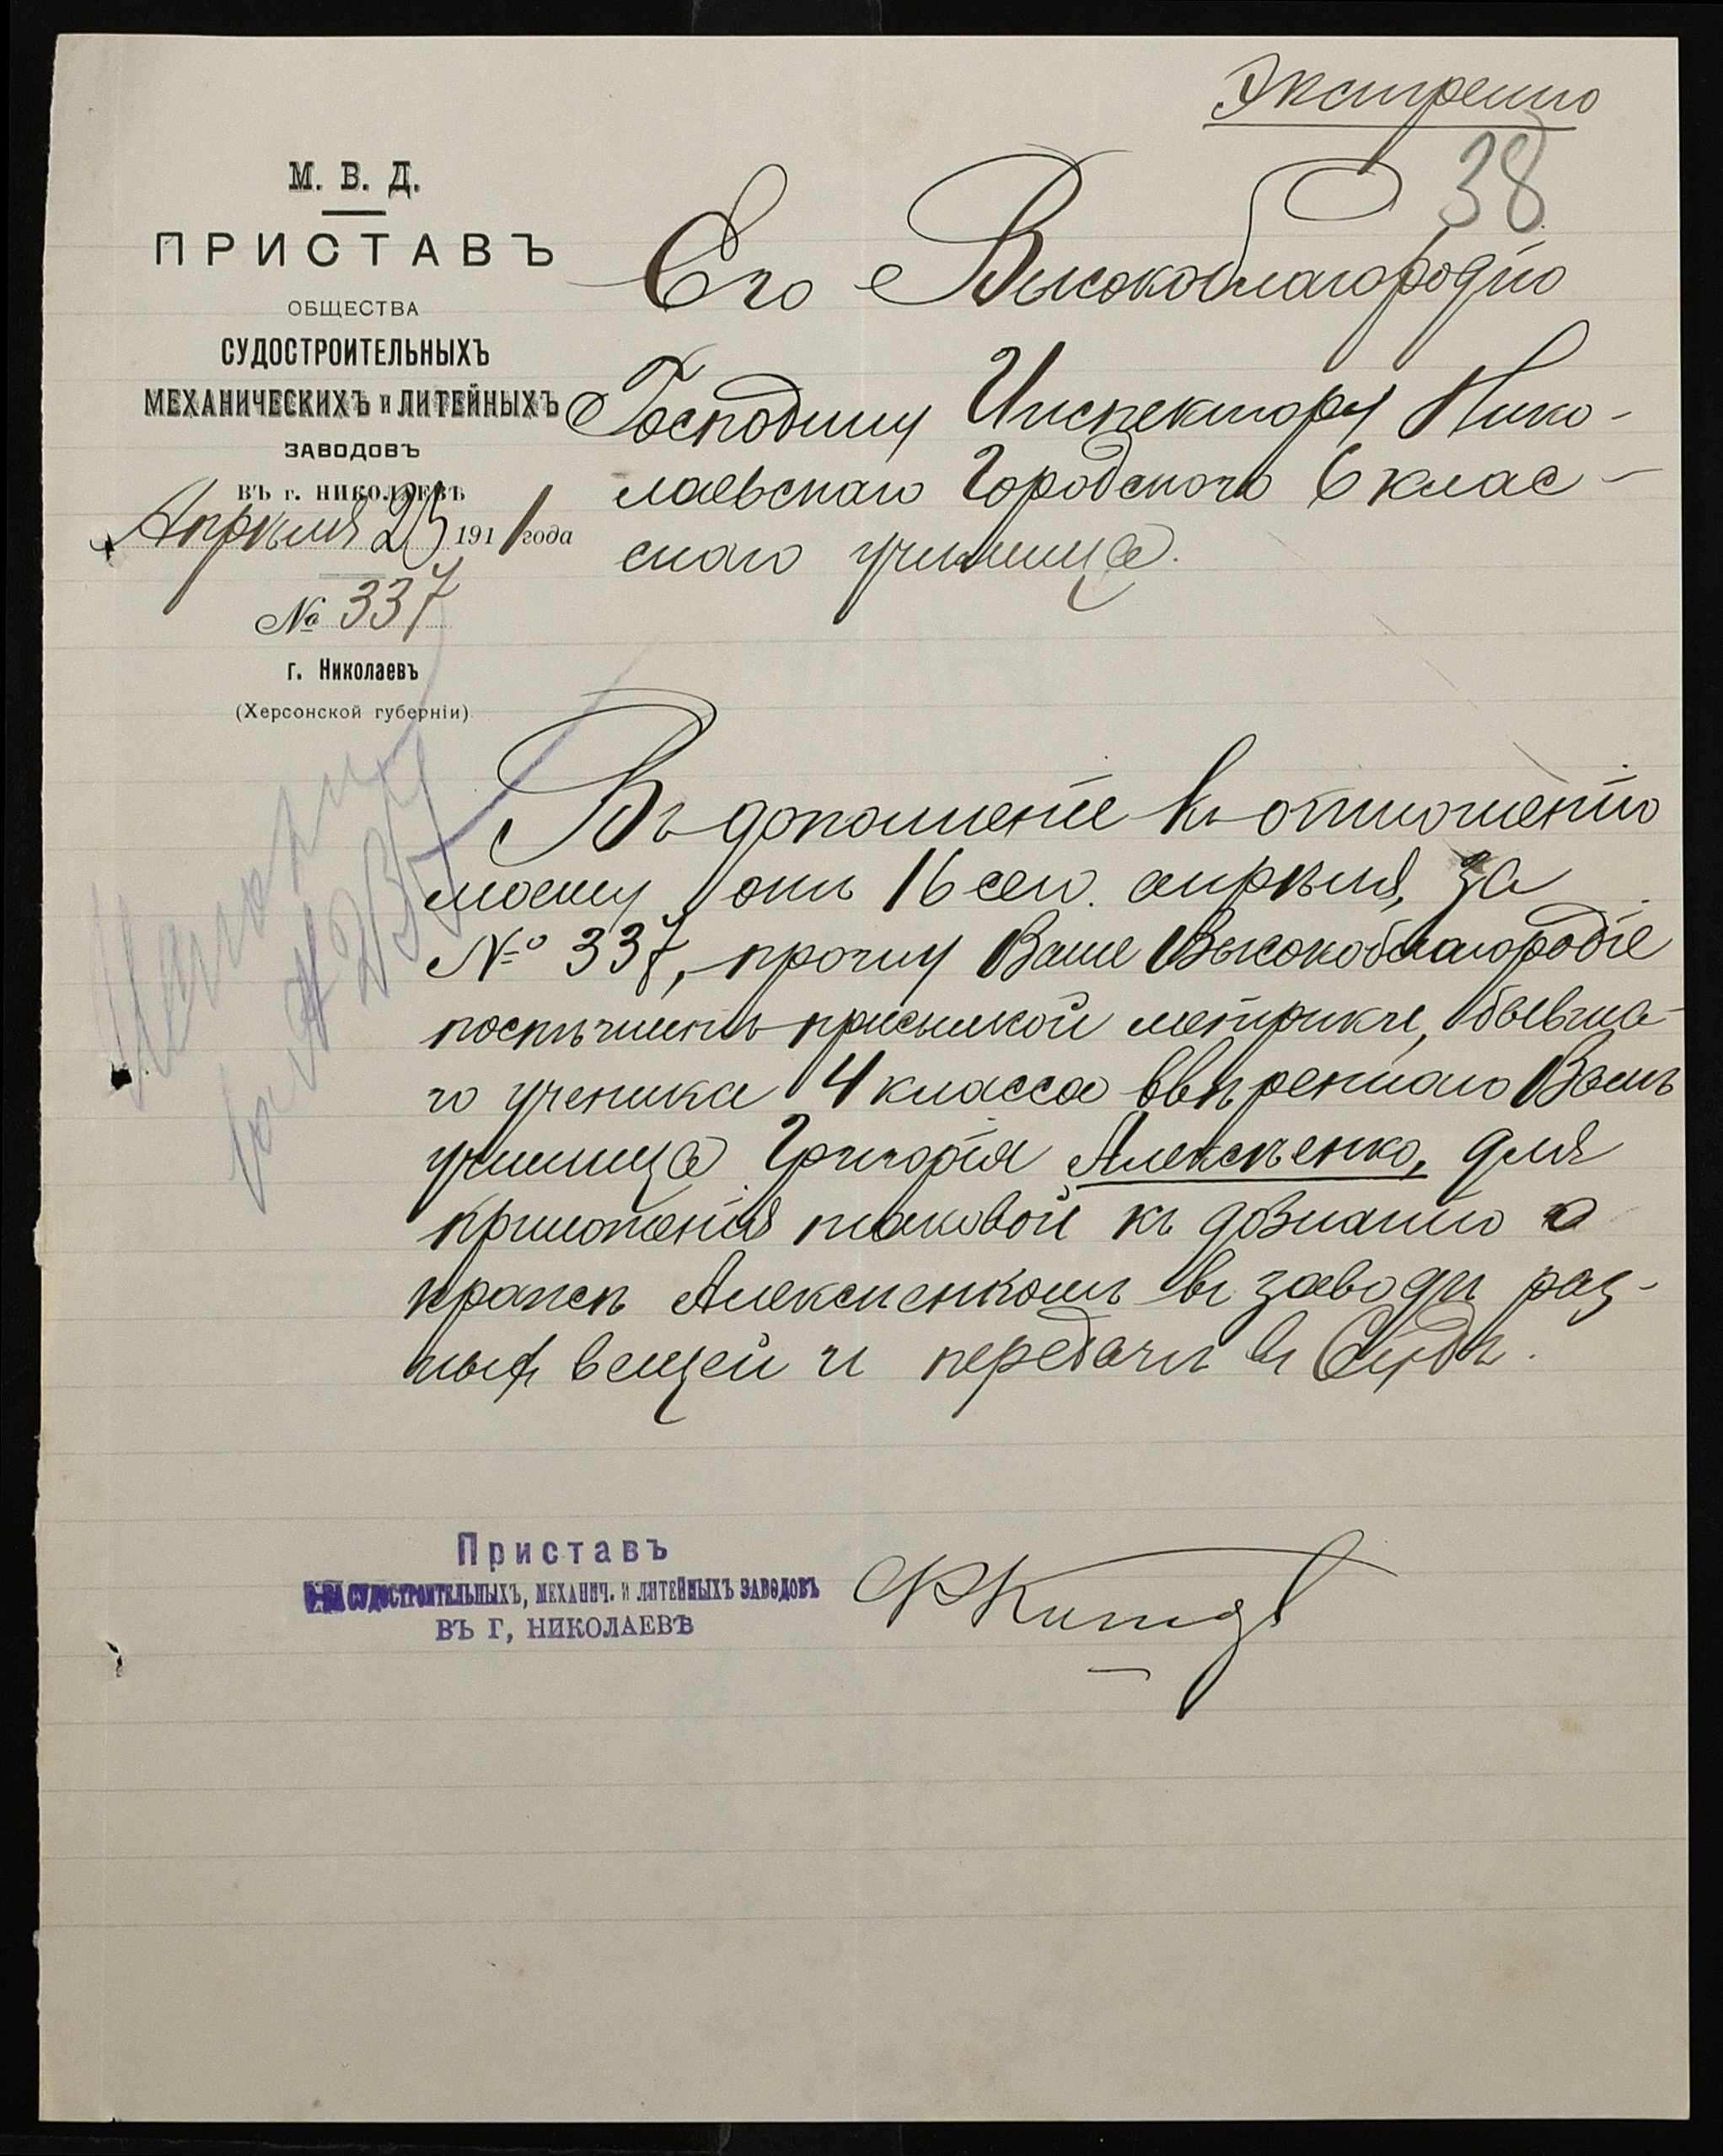 Экстренно
38
М. В. Д.
ПРИСТАВЪ
ОБЩЕСТВА
СУДОСТРОИТЕЛЬНЫХЪ
МЕХАНИЧЕСКИХЪ и ЛИТЕЙНЫХЪ
ЗАВОДОВЪ
ВЪ г. НИКОЛАЕВѢ
Апрѣля 25 1911 года
№ 337
г. Николаевъ
(Херсонской губерніи)
Его Высокоблагородію
Господину Инспектору Нико-
лаевскаго Городского 6 клас-
снаго училища.
Въ дополненіе къ отношенію
моему отъ 16 сего апрѣля, за
№ 337, прошу Ваше Высокоблагородіе
поспѣшить присылкой метрики, бывша-
го ученика 4 класса ввѣреннаго Вамъ
училища Григорія Алексѣенко, для
приложенія таковой къ дознанію о
кражѣ Алексѣенкомъ въ заводѣ раз-
ныхъ вещей и передачи въ Судъ.
Приставъ
О-ВА СУДОСТРОИТЕЛЬНЫХЪ, МЕХАНИЧ. И ЛИТЕЙНЫХЪ ЗАВОДОВЪ
ВЪ Г, НИКОЛАЕВѢ